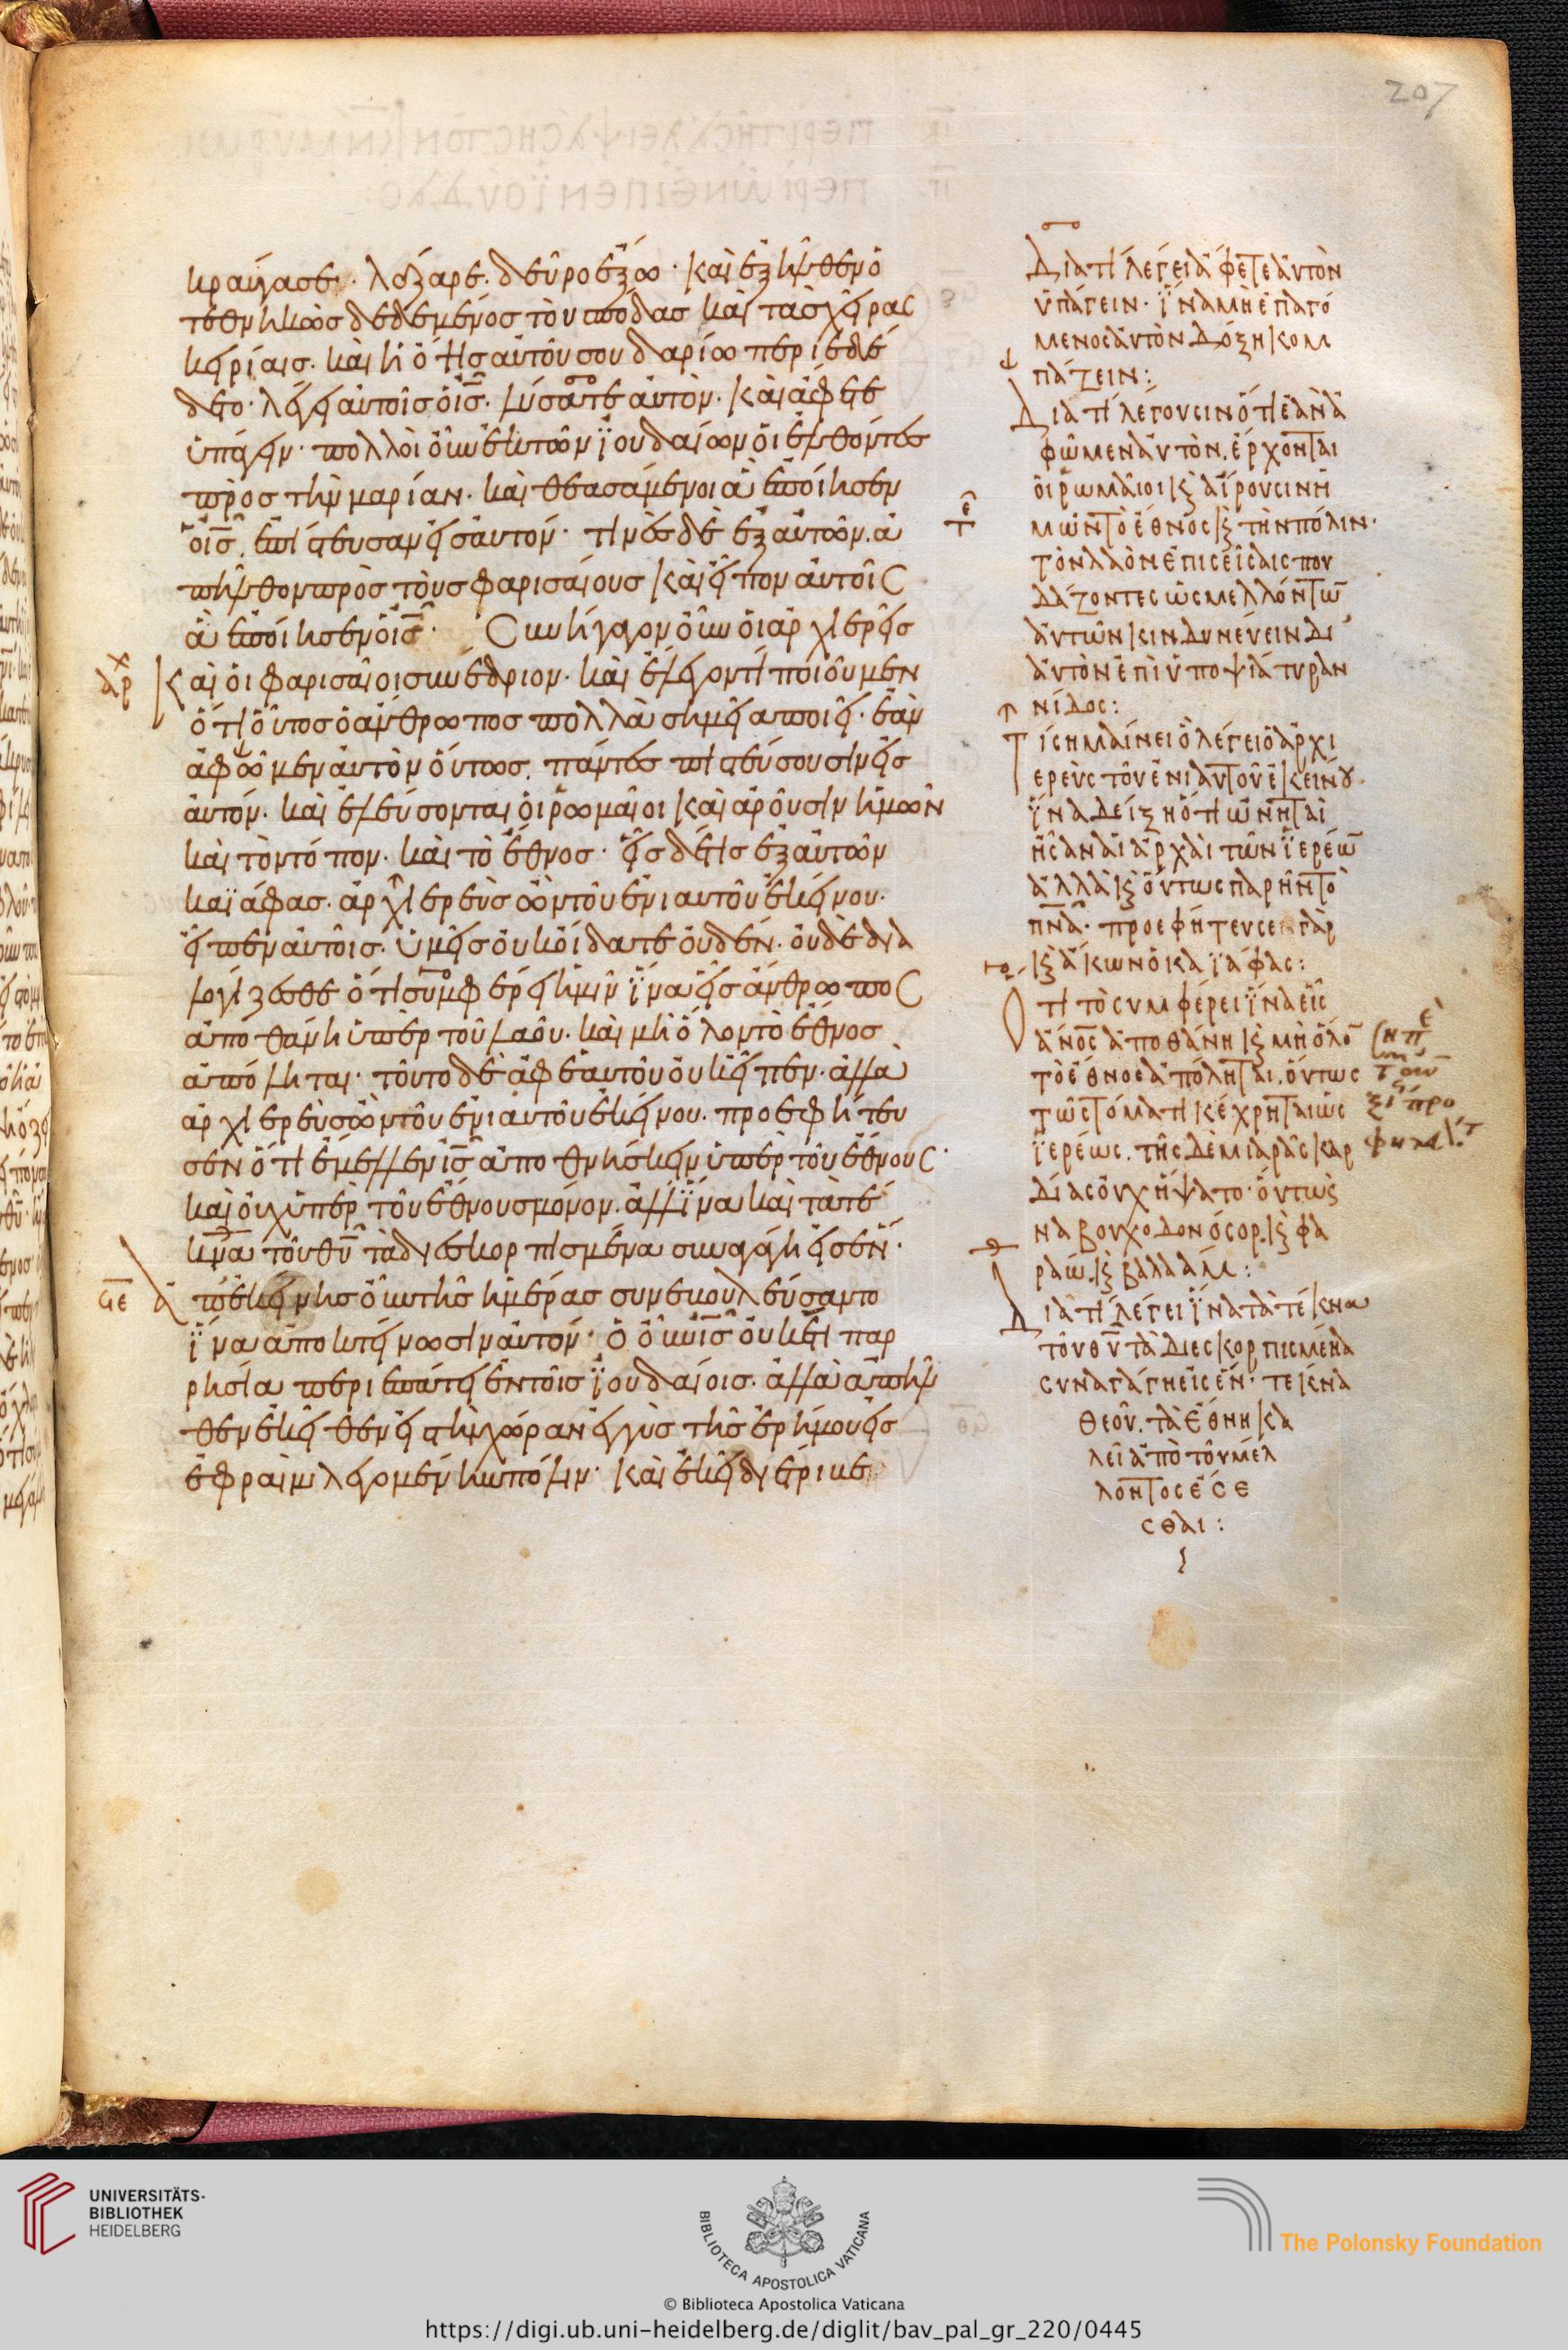 207
κραύγασε· λάζαρε. δεῦρο ἔξω· καὶ ἐξῆλθεν ὁ
τεθνηκὼς δεδεμένος τοὺς πόδας καὶ τὰς χεῖρας
κειρίαις. καὶ ἡ ὄψις αὐτοῦ σουδαρίω περιεδέ
δετο· λέγει αὐτοῖς ὁ ις̅. λύσατε αὐτὸν. καὶ ἄφετε
ὑπάγειν· πολλοὶ οὖν ἐκ τῶν ϊουδαίων οἱ ἐλθόντες
πρὸς τὴν μαρίαν. καὶ θεασάμενοι ἃ ἐποίησεν
ὁ ις̅. ἐπίστευσαν εἰς αὐτόν· τινὲς δὲ ἐξ αὐτῶν. ἀ
πῆλθον πρὸς τοὺς φαρισαίους καὶ εἶπον αὐτοῖς
ἃ ἐποίησεν ὁ ις̅· Συνήγαγον οὖν οἱ ἀρχιερεῖς
αρχ Καὶ οἱ φαρισαῖοι συνέδριον. καὶ ἔλεγον τί ποιοῦμεν
ὅτι οὗτος ὁ ἄνθρωπος πολλὰ σημεῖα ποιεῖ. ἐὰν
ἀφῶμεν αὐτὸν οὕτως. πάντες πιστεύσουσιν εἰς
αὐτόν. καὶ ἐλεύσονται οἱ ῥωμαῖοι καὶ ἀροῦσιν ἡμῶν
καὶ τὸν τόπον. καὶ τὸ ἔθνος· εἷς δέ τις ἐξ αὐτῶν
καϊάφας. ἀρχιερεὺς ὢν τοῦ ἐνιαυτοῦ ἐκείνου.
εἶπεν αὐτοῖς. ὑμεῖς οὐκ οἴδατε οὐδέν. οὐδὲ δια
λογίζεσθε ὅτι συμφέρει ἡμῖν ἵνα εἷς ἄνθρωπος
ἀποθάνη ὑπὲρ τοῦ λαοῦ. καὶ μὴ ὅλον τὸ ἔθνος
ἀπόληται· τοῦτο δὲ ἀφ ἑαυτοῦ οὐκ εἶπεν. ἀλλὰ
ἀρχιερεὺς ὢν τοῦ ἐνιαυτοῦ ἐκείνου. προεφήτευ
σεν ὅτι ἔμελλεν ις̅ ἀποθνήσκειν ὑπὲρ τοῦ ἔθνους·
καὶ οὐχ ὑπὲρ τοῦ ἔθνους μόνον. ἀλλ ἵνα καὶ τὰ τέ
κνα τοῦ θυ̅ τὰ διεσκορπισμένα συναγάγη εἰς ἕν·
Ϛε ἀπ ἐκείνης οὖν τῆς ἡμέρας συνεβουλεύσαντο
ἵνα ἀποκτείνωσιν αὐτόν· ὁ οὖν ις̅ οὐκέτι παρ
ρησία περιεπάτει ἐν τοῖς ϊουδαίοις. ἀλλὰ ἀπῆλ
θεν ἐκεῖθεν εἰς τὴν χώραν ἐγγὺς τῆς ἐρήμου εἰς
ἐφραὶμ λεγομένην πόλιν· καὶ ἐκεῖ διέτριβε
Διατί λέγει ἄφετε αὐτὸν
ὑπάγειν· ἵνα μὴ ἐπαγό
μενος αὐτὸν δόξη κομ
πάζειν:
Διατί λέγουσιν ὅτι ἐὰν ἀ
φῶμεν αὐτὸν. ἔρχονται
οἱ ῥωμαῖοι κ αἴρουσιν ἡ
μῶν τὸ ἔθνος κ τὴν πόλιν·
τὸν λαὸν ἐπισεῖσαι σπου
δάζοντες ὡς μελλόντω̅
αὐτῶν κινδυνεύειν δι
αὐτὸν ἐπὶ ὑποψία τυραν
νίδος:
Τί σημαίνει ὃ λέγει ὁ ἀρχι
ερεὺς τοῦ ἐνιαυτοῦ ἐκείνου
ἵνα δείξη ὅτι ὠνηταὶ
ἦσαν αἱ ἀρχαὶ τῶν ϊερέω̅
ἀλλὰ κ οὕτως παρῆν τὸ
πνα̅· προεφήτευσε γὰρ
κ ἄκων ὁ καϊάφας:
τί τὸ συμφέρει ἵνα εἷς
ἄνος̅ ἀποθάνη κ μὴ ὅλο̅
τὸ ἔθνος ἀπόληται. οὕτως
τῶ στόματι κέχρηται ὡς
ϊερέως. τῆς δὲ μιαρᾶς καρ
δίας οὐχ ἥψατο· οὕτως
ναβουχοδονόσορ. κ φα
ραώ. κ βαλαάμ:
Διατί λέγει ἵνα τὰ τέκνα
τοῦ θυ̅ τὰ διεσκορπισμένα
συναγάγη εἰς ἕν· τέκνα
θεοῦ. τὰ ἔθνη κα
λεῖ ἀπὸ τοῦ μέλ
λοντος ἔσε
σθαι:
UNIVERSITÄTS-
BIBLIOTHEK
HEIDELBERG
BIBLIOTECA APOSTOLICA VATICANA
© Biblioteca Apostolica Vaticana
The Polonsky Foundation
https://digi.ub.uni-heidelberg.de/diglit/bav_pal_gr_220/0445